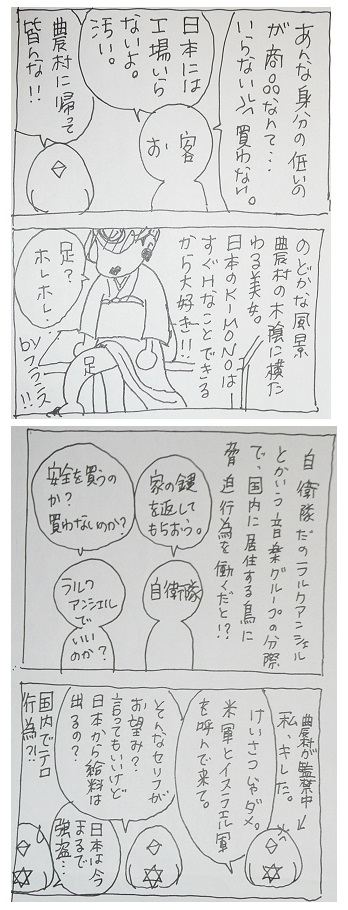 あんな身分の低いの
が商品なんて…
いらない 買わない。
お客
日本には
工場いら
ないよ。
汚い。
農村に帰って
皆んな!!
のどかな風景
農村の木陰に横た
わる美女。
日本のKIMONOは
すぐHなことできる
から大好き!!
足?
ホレホレ!
byフランス!!
足
自衛隊だのラルクアンシェル
とかいう音楽グループの分際
で、国内に居住する鳥に
脅迫行為を働くだと!?
家の鍵
を返して
もらおう。
自衛隊
安全を買うの
か?
買わないのか?
ラルク
アンシェル
で
いいのか?
農村が監禁中
私、キレた。
けいさつじゃダメ。
米軍とイスラエル軍
を呼んで来て。
そんなセリフが
お望み?
言ってもいいけど
日本から給料は
出るの?
日本は今
まるで
強盗…
国内でテロ
行為?!